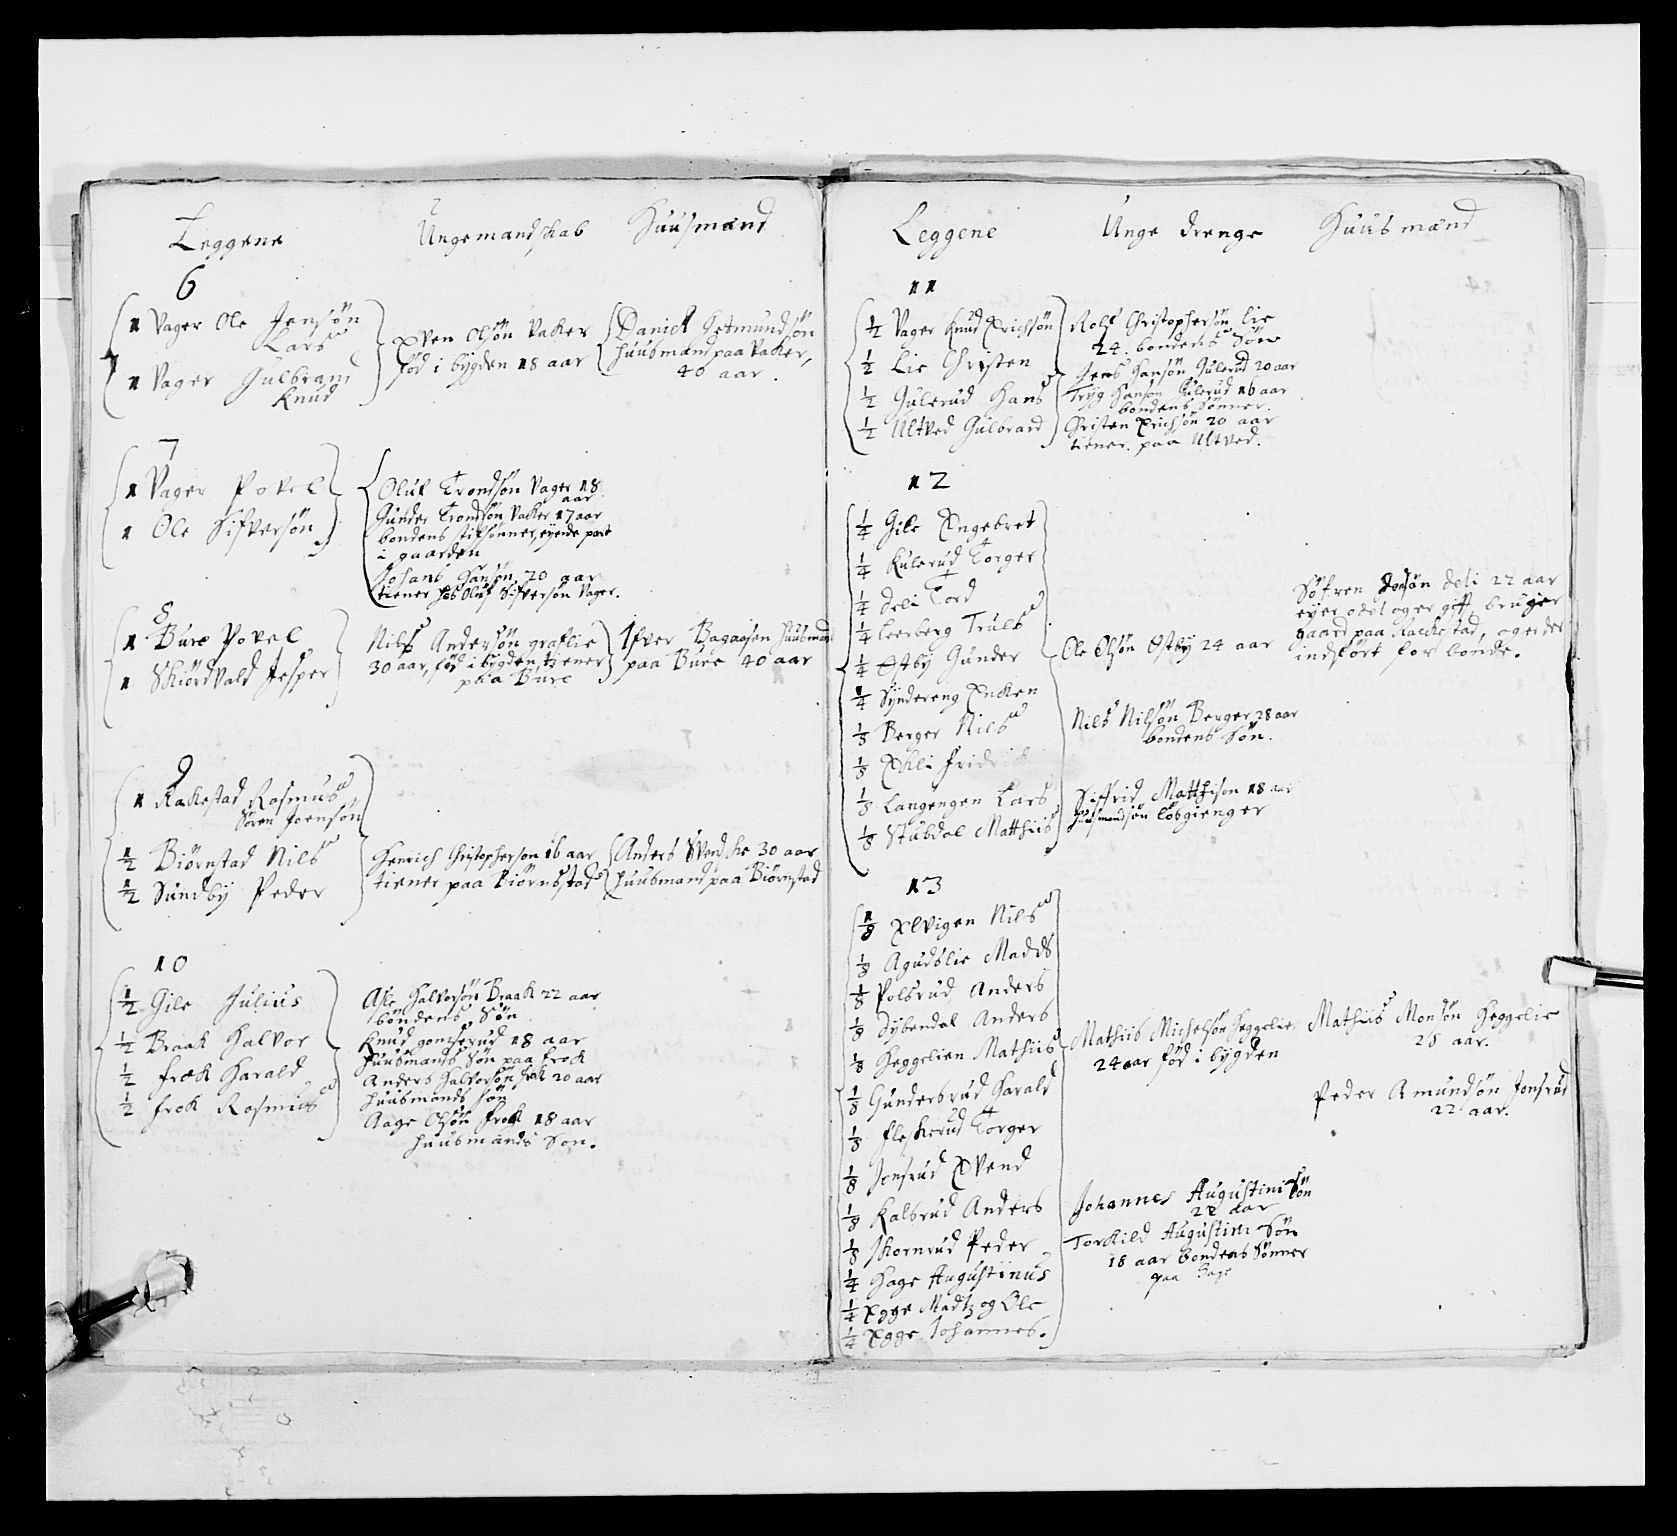 Leggene Ungemandskab Huusmænd
6
1 Vager Ole Jensøn
Lars
1 Vager Gulbrand
Knud
Even Olsøn Vaker
fød i bygden 18 aar
Daniel Getmundsøn
huusmand paa Vaker,
40 aar.
7
1 Vager Povel
1 Ole Sifversøn
Oluf Trondsøn Vager 18
aar
Gunder Trondsøn Vaker 17 aar
bondens stifsønner, eyende part
i gaarden
Johans Hansøn 20 aar
tiener hos Oluf Sifversøn Vager.
8
1 Bure Povel
1 Skiørdvald Jesper
Nils Andersøn graflie
30 aar, fød i bygden, tiener
paa Bure
Ifver Bagaasen huusmand
paa Bure 40 aar
9
1 Rakestad Rasmus
Søren Joensøn
1/2 Biørnstad Nils
1/2 Sundby Peder
Henrich Christopherson 16 aar
tiener paa Biørnstad
Anders Svendske 30 aar
huusmand paa Biørnstad
10
1/2 Gile Julius
1/2 Braak Halvor
1/2 frøk Harald
1/2 frøk Rasmus
Asle Halvorsøn Braak 22 aar
bondens Søn
Knud gomserud 18 aar
huusmands Søn paa frøk
Anders Halvorsøn frøk 20 aar
huusmands søn
Aage Olsøn frøk 18 aar
huusmands Søn.
Leggene Unge drenge Huusmænd
11
1/2 Vager Knud Erichsøn
1/2 Lie Christen
1/2 Gulerud Hans
1/2 Ultved Gulbrand
Rolf Christophersøn Lie
24. bondens Søn
Jens Hansøn Gulerud 20 aar
Tryg Hansøn Gulerud 16 aar
bondens Sønner.
Christen Erichsøn 20 aar
tiener paa Ultved.
12
1/4 Gile Engebret
1/4 Kulerud Torger
1/4 Deli Tord
1/4 Leerberg Truls
1/4 Østby Gunder
1/4 Syndereng Encken
1/8 Berger Nils
1/8 Ekli fridrich
1/8 Langengen Lars
1/8 Stubdal Matthiis
Ole Olsøn Østby 24 aar
Nils Nilsøn Berger 28 aar
bondens Søn.
Siffrid Matthison 18 aar
huusmandsøn løsgienger
Søfren Joensøn deli 22 aar
eyer odel og er gift, bruger
gaard paa Rackestad, og er der
indført for bonde.
13
1/8 Elvigen Nils
1/8 Agudslie Madds
1/8 Polsrud Anders
1/8 Dybendal Anders
1/8 Heggelien Mathiis
1/8 Gundersrud Harald
1/8 fleskerud Torger
1/8 Jonsrud Evend
1/8 Kalsrud Anders
1/8 skornrud Peder
1/4 Hage Augustinus
1/4 Egge Madtz og Ole
1/4 Egge Johannes.
Mathiis Michelsøn Heggelie
24 aar fød i bygden
Johannes Augustini Søn
22 aar
Torkild Augustini Søn
18 aar bondens Sønner
paa Hage
Mathiis Monsøn Heggelie
28 aar.
Peder Amundsøn Jonsrud
22 aar.